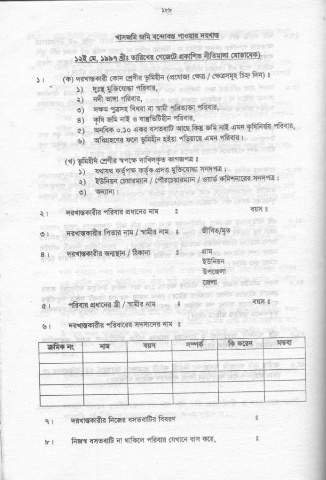 ১৮৮
খাসজমি জমি বন্দোবস্ত পাওয়ার দরখাস্ত
১২ই মে, ১৯৯৭ খ্রীঃ তারিখের গেজেটে প্রকাশিত নীতিমালা মোতাবেক)
১। (ক) দরখাস্তকারী কোন শ্রেণীর ভূমিহীন (প্রযোজ্য ক্ষেত্র / ক্ষেত্রসমূহ চিহ্ন দিন) ঃ
১) দুঃস্থ মুক্তিযোদ্ধা পরিবার,
২) নদী ভাঙ্গা পরিবার,
৩) সক্ষম পুত্রসহ বিধবা বা স্বামী পরিত্যক্তা পরিবার,
৪) কৃষি জমি নাই ও বাস্তুভিটাহীন পরিবার,
৫) অনধিক ০.১০ একর বসতবাটি আছে কিন্তু জমি নাই এমন কৃষিনির্ভর পরিবার,
৬) অধিগ্রহণের ফলে ভূমিহীন হইয়া পড়িয়াছে এমন পরিবার।
(খ) ভূমিহীন শ্রেণীর স্বপক্ষে দাখিলকৃত কাগজপত্র ঃ
১) যথাযথ কর্তৃপক্ষ কর্তৃক প্রদত্ত মুক্তিযোদ্ধা সনদপত্র।
২) ইউনিয়ন চেয়ারম্যান / পৌরচেয়ারম্যান / ওয়ার্ড কমিশনারের সনদপত্র।
৩) অন্যান্য।
২। দরখাস্তকারীর পরিবার প্রধানের নাম ঃ বয়স ঃ
৩। দরখাস্তকারীর পিতার নাম / স্বামীর নাম ঃ জীবিত/মৃত
৪। দরখাস্তকারীর জন্মস্থান / ঠিকানা ঃ গ্রাম
ইউনিয়ন
উপজেলা
জেলা
৫। পরিবার প্রধানের স্ত্রী / স্বামীর নাম ঃ বয়স ঃ
৬। দরখাস্তকারীর পরিবারের সদস্যদের নাম ঃ
ক্রমিক নং নাম বয়স সম্পর্ক কি করেন মন্তব্য
৭। দরখাস্তকারীর নিজের বসতবাটির বিবরণ ঃ
৮। নিজস্ব বসতবাটি না থাকিলে পরিবার যেখানে বাস করে, ঃ